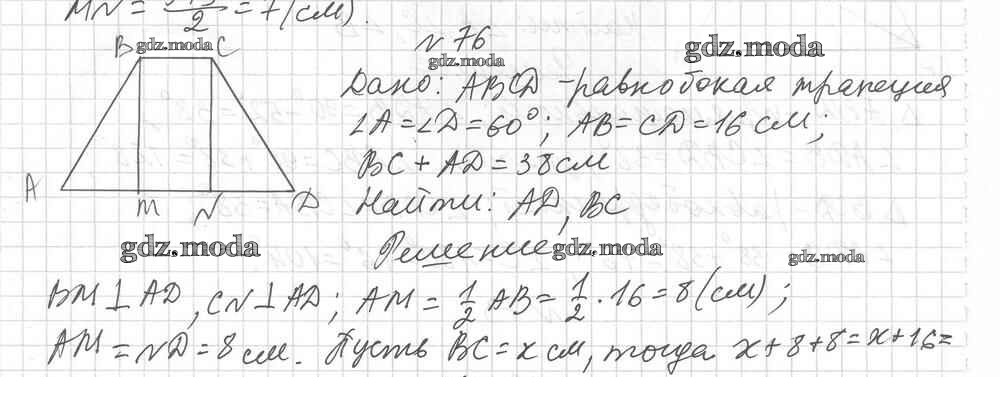 MN = /2 = 7 (см).
B gdz.moda C
№ 76
gdz.moda
gdz.moda
Дано: ABCD - равнобокая трапеция
∠A = ∠D = 60°; AB = CD = 16 см;
BC + AD = 38 см
A M N D
Найти: AD, BC
gdz.moda
Решение
gdz.moda
gdz.moda
BM ⊥ AD, CN ⊥ AD; AM = 1/2 AB = 1/2 · 16 = 8 (см);
AM = ND = 8 см. Пусть BC = x см, тогда x + 8 + 8 = x + 16 =